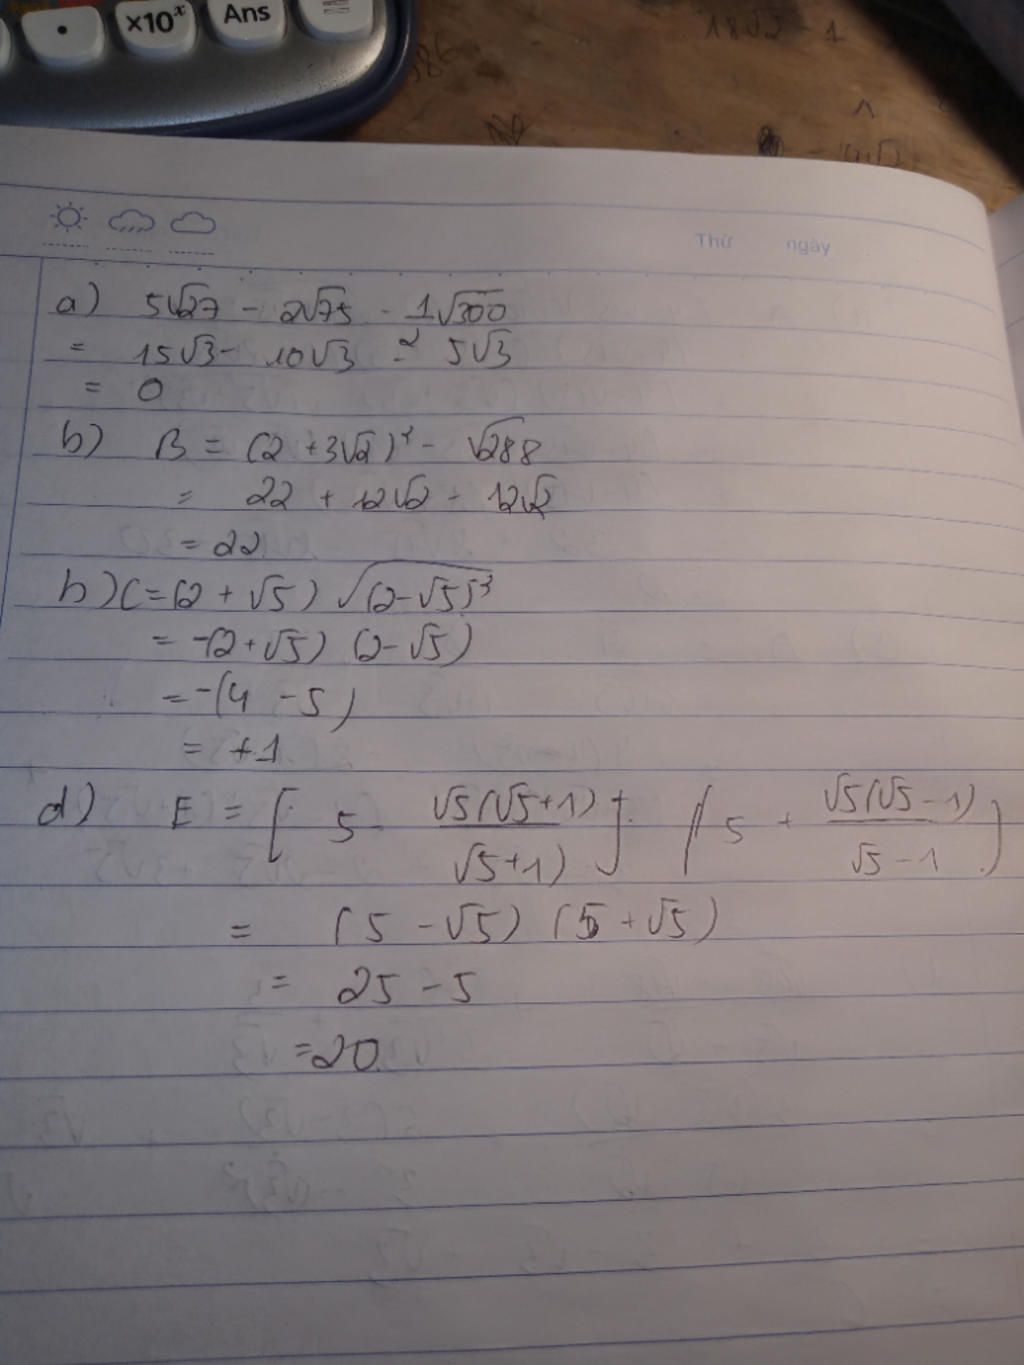 . ×10ˣ Ans =
18√2 - 1
Thứ ngày
a) 5√27 - 2√75 - 1√300
2
= 15√3 - 10√3 - 5√3
= 0
b) B = (2 + 3√2)² - √288
= 22 + 12√2 - 12√2
= 22
b) C = (2 + √5) √(2-√5)²
= -(2 + √5) (2 - √5)
= -(4 - 5)
= +1
d) E = [ 5 - √5(√5+1) / √5+1) ] . ( 5 + √5(√5 - 1) / √5 - 1 )
= (5 - √5) (5 + √5)
= 25 - 5
= 20